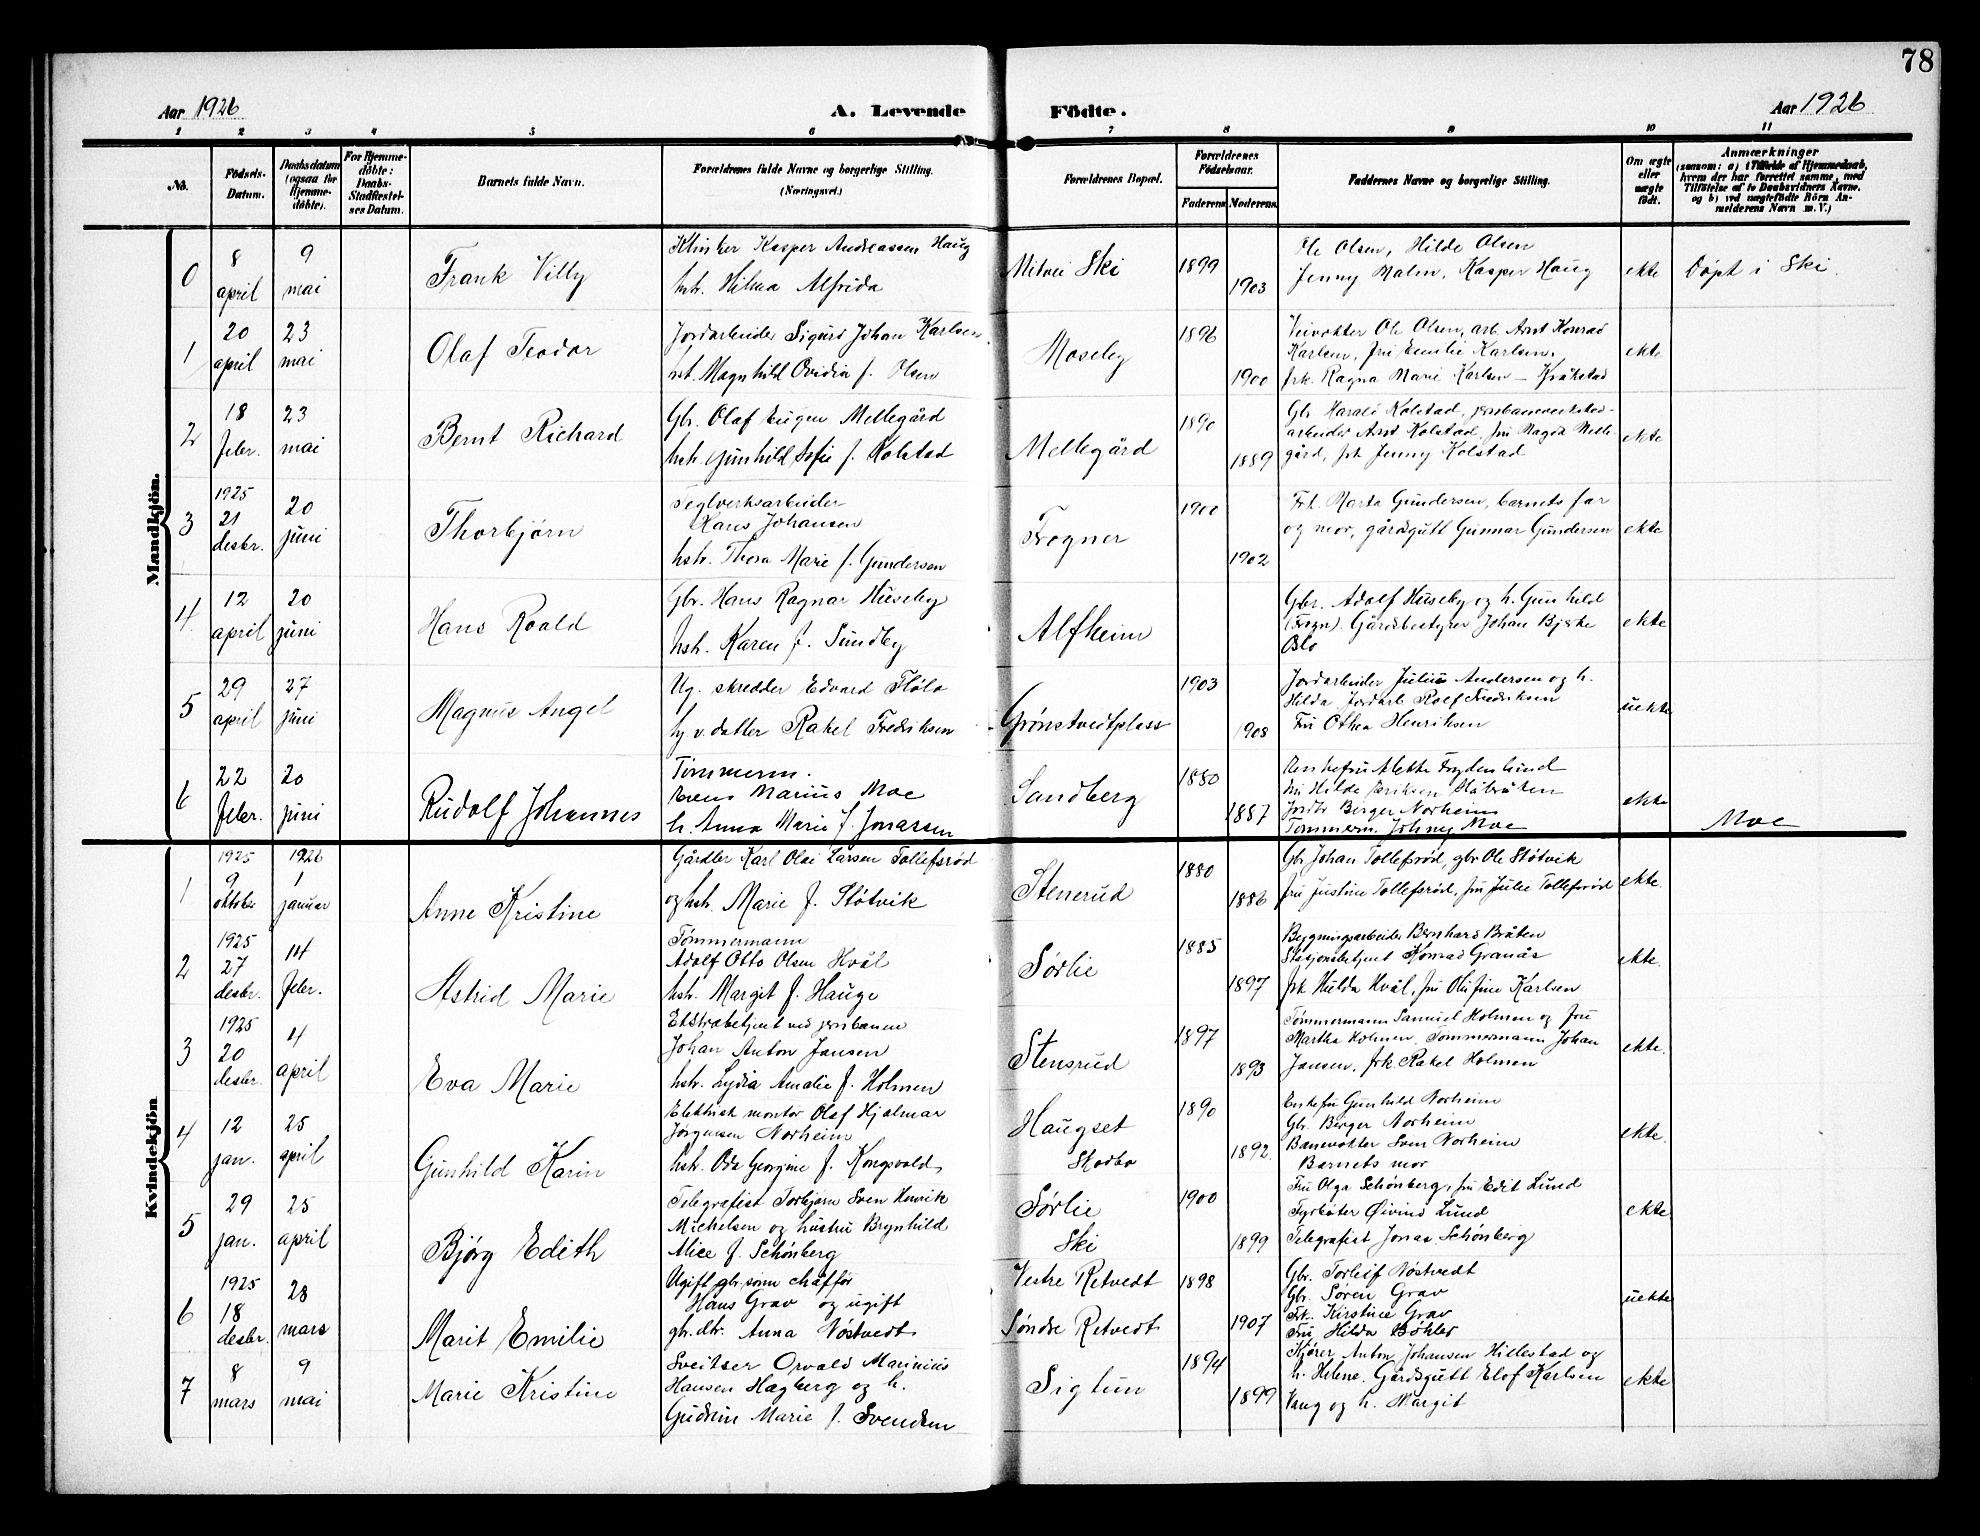 78
Aar 1926 A. Levende Födte. Aar 1926
1 2 3 4 5 6 7 8 9 10 11
No.
Födsels-
Datum.
Daabsdatum
(ogsaa for
Hjemme-
döbte).
For Hjemme-
döbte:
Daabs-
Stadfæstel-
ses Datum.
Barnets fulde Navn.
Forældrenes fulde Navne og borgerlige Stilling.
(Næringsvei.)
Forældrenes Bopæl.
Forældrenes
Födselsaar.
Faderens Moderens
Faddernes Navne og borgerlige Stilling.
Om ægte
eller
uægte
födt.
Anmærkninger
(saasom: a) i Tilfælde af Hjemmedaab,
hvem der har forrettet samme, med
Tilföielse af to Daabsvidners Navne,
og b) ved uægtefödte Börn An-
melderens Navn m. V.)
Mandkjön.
0
8
april
9
mai
Frank Villy
Klinker Kasper Andreassen Haug
hstr. Hilma Alfrida
Mitvei Ski
1899
1903
Ole Olsen, Hilde Olsen
Jenny Malm, Kasper Haug
ekte
Døpt i Ski.
1
20
april
23
mai
Olaf Teodor
Jordarbeider Sigurd Johan Karlsen
hst. Magnhild Ovidia f. Olsen
Moseby
1896
1900
Veivokter Ole Olsen, arb. Arnt Konrad
Karlsen, fru Emilie Karlsen,
frk. Ragna Marie Karlsen – Kråkstad
ekte
2
18
febr.
23
mai
Bernt Richard
Gbr. Olaf Eugen Mellegård
hstr. Gunhild Sofie f. Kolstad
Mellegård
1890
1889
Gbr Harald Kolstad, jernbaneverksted-
arbeider Arnt Kolstad, fru Magda Melle-
gård, frk Jenny Kolstad
ekte
3
1925
21
desbr.
20
juni
Thorbjørn
Teglverksarbeider
Hans Johansen
hstr. Thora Marie f. Gundersen
Frogner
1900
1902
Frk. Marta Gundersen, barnets far
og mor, gårdsgutt Gunnar Gundersen
ekte
4
12
april
20
juni
Hans Roald
Gbr. Hans Ragnar Huseby
hstr. Karen f. Sundby
Alfheim
Gbr. Adolf Huseby og h. Gunhild
(Frogn). Gårdsbestyrer Johan Bjerke
Oslo
ekte
5
29
april
27
juni
Magnus Angel
Ug. skredder Edvard Fløla
hj. v. datter Rakel Fredriksen
Grønstveitplass
1903
1908
Jordarbeider Julius Andersen og h.
Hilda Jordarb Rolf Fredriksen
Fru Othea Henriksen
uekte
6
22
febr.
20
juni
Rudolf Johannes
Tømmerm.
Marius Moe
h. Anna Marie f. Jonassen
Sandberg
1880
1887
Fru Hilde
Jordbr Birger Norheim
Tømmerm. Johny Moe
ekte
Moe
Kvindekjön
1
1925
9
oktober
1926
1
januar
Anne Kristine
Gårdbr Karl Olai Larsen Tollefsrød
og hstr. Marie f. Støtvik
Stenerud
1880
1886
Gbr Johan Tollefsrød, gbr Ole Støtvik
fru Justine Tollefsrød, fru Julie Tollefsrød
ekte
2
1925
27
desbr.
14
febr.
Astrid Marie
Tømmermann
Adolf Otto Olsen Hvål
hstr. Margit f. Hauge
Sørlie
1885
1897
Bygningsarbeider Bernhard Bråten
Stasjonsbetjent Konrad Granås
frk Hulda Hvål, fru Olufine Karlsen
ekte.
3
1925
20
desbr.
4
april
Eva Marie
Ekstrabetjent ved jernbanen
Johan Anton Jansen
hstr. Lydia Amalie f. Holmen
Stensrud
1897
1893
Tømmermann Samuel Holmen og fru
Martha Holmen. Tømmermann Johan
Jansen, frk Rakel Holmen
ekte.
4
12
jan.
25
april
Gunhild Karin
Elektrisk montør Olaf Hjalmar
Jørgensen Norheim
hstr. Oda Georgine f. Kongsvold
Haugset
Skodbo
1890
1892.
Enkefru Gunhild Norheim
Gbr. Birger Norheim
Banevokter Sven Norheim
Barnets mor
ekte.
5
29
jan.
25
april
Bjørg Edith
Telegrafist Torbjørn Sven Henrik
Michelsen og hustru Brynhild
Alice f. Schønberg
Sørlie
Ski
1900
1899
Fru Olga Schønberg, fru Edit Lund
Fyrbøter Øivind Lund
Telegrafist Jonas Schønberg
ekte.
6
1925
18
desbr.
28
mars
Marit Emilie
Ugift gbr.sønn chaffør
Hans Grav og ugift
gb. dtr. Anna Nøstvedt
Vestre Retvedt
Søndre Retvedt
1898
1907
Gbr. Torleif Nøstvedt
Gbr. Søren Grav
Frk. Kirstine Grav
Fru Hilda Bøhler
uekte
7
8
mars
9
mai
Marie Kristine
Sveitser Orvald Marinius
Hansen Hagberg og h.
Gudrun Marie f. Svendsen
Sigtun
1894
1899
Kjører Anton Johansen Hillestad og
h. Helene. Gårdsgutt Elof Karlsen
Krug og h. Margit
ekte